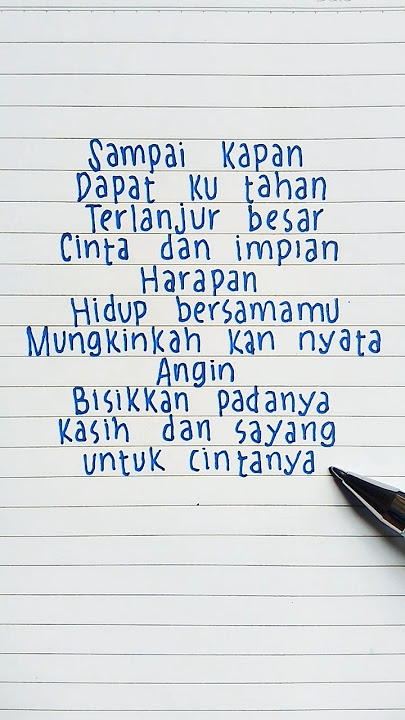 Sampai kapan
Dapat ku tahan
Terlanjur besar
Cinta dan impian
Harapan
Hidup bersamamu
Mungkinkah kan nyata
Angin
Bisikkan padanya
Kasih dan sayang
untuk cintanya